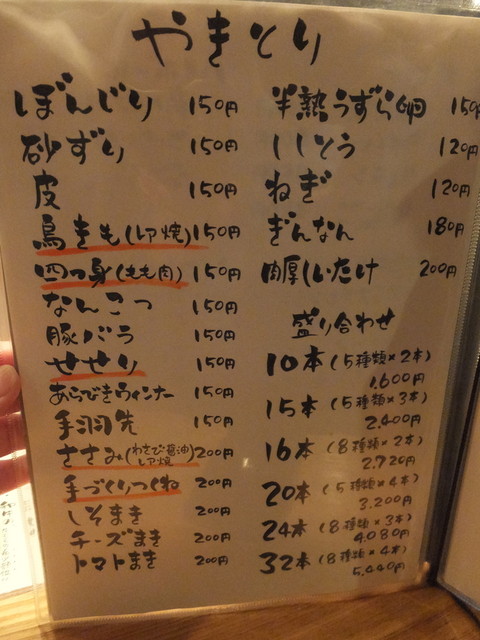 やきとり
ぼんじり 150円
砂ずり 150円
皮 150円
鳥きも(レア焼) 150円
四つ身(もも肉) 150円
なんこつ 150円
豚バラ 150円
せせり 150円
あらびきウィンナー 150円
手羽先 150円
ささみ(わさび・醤油 レア焼) 200円
手づくりつくね 200円
しそまき 200円
チーズまき 200円
トマトまき 200円
半熟うずら卵 150円
ししとう 120円
ねぎ 120円
ぎんなん 180円
肉厚しいたけ 200円
盛り合わせ
10本(5種類×2本)
1.600円
15本(5種類×3本)
2.400円
16本(8種類×2本)
2.720円
20本(5種類×4本)
3.200円
24本(8種類×3本)
4.080円
32本(8種類×4本)
5.440円